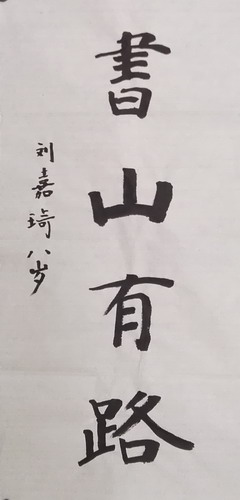 書山有路
刘嘉琦八岁